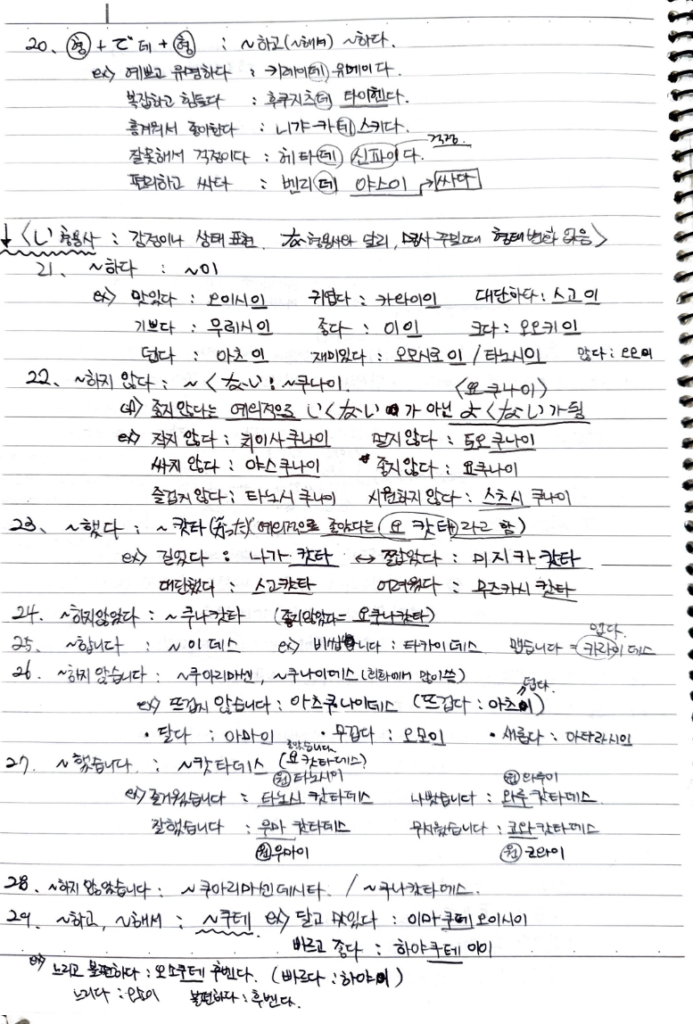 20. 형 + で 데 + 형 : ~하고(~해서) ~하다.
ex> 예쁘고 유명하다 : 키레이데 유메이다.
복잡하고 힘들다 : 후쿠자츠데 타이헨다.
흥겨워서 좋아한다 : 니갸-카데 스키다.
잘못해서 걱정이다 : 헤타데 신파이다. 걱정
편리하고 싸다 : 벤리데 야스이 → 싸다
↓ <い 형용사 : 감정이나 상태 표현. な형용사와 달리, 명사 꾸밀때 형태변화 없음>
21. ~하다 : ~이
ex> 맛있다 : 오이시이 귀엽다 : 카와이이 대단하다 : 스고이
기쁘다 : 우레시이 좋다 : 이이 크다 : 오오키이
덥다 : 아츠이 재미있다 : 오모시로이 / 타노시이 많다 : 오오이
22. ~하지 않다 : ~くない : ~쿠나이. <요쿠나이>
좋지않다는 예외적으로 いくない가 아닌 よくない가 됨
ex> 작지 않다 : 치이사쿠나이 멀지않다 : 토오쿠나이
싸지 않다 : 야스쿠나이 좋지않다 : 요쿠나이
즐겁지 않다 : 타노시쿠나이 시원하지않다 : 스즈시쿠나이
23. ~했다 : ~캇타(かった) 예외적으로 좋았다는 요캇타라고 함)
ex> 길었다 : 나가캇타 ↔ 짧았다 : 미지카캇타
대단했다 : 스고캇타 어려웠다 : 무즈카시캇타
24. ~하지않았다 : ~쿠나캇타 (좋지않았다= 요쿠나캇타)
25. ~합니다 : ~이데스 ex> 비쌉니다 : 타카이데스 맵습니다 = 카라이데스 맵다.
26. ~하지 않습니다 : ~쿠아리마센, ~쿠나이데스 (회화에서 많이씀)
ex> 뜨겁지 않습니다 : 아츠쿠나이데스 (뜨겁다 : 아츠이) 덥다.
· 달다 : 아마이 · 무겁다 : 오모이 · 새롭다 : 아타라시이
27. ~했습니다 : ~캇타데스 (요캇타데스) 좋았습니다
원 타노시이 원 와루이
ex> 즐거웠습니다 : 타노시캇타데스 나빴습니다 : 와루캇타데스
잘했습니다 : 우마캇타데스 무서웠습니다 : 코와캇타데스
원 우마이 원 코와이
28. ~하지 않았습니다 : ~쿠아리마센데시타. / ~쿠나캇타데스.
29. ~하고, ~해서 : ~쿠테 ex> 달고 맛있다 : 아마쿠테 오이시이
빠르고 좋다 : 하야쿠테 이이
ex> 느리고 불편하다 : 오소쿠테 후벤다. (빠르다 : 하야이)
느리다 : 오소이 불편하다 : 후벤다.